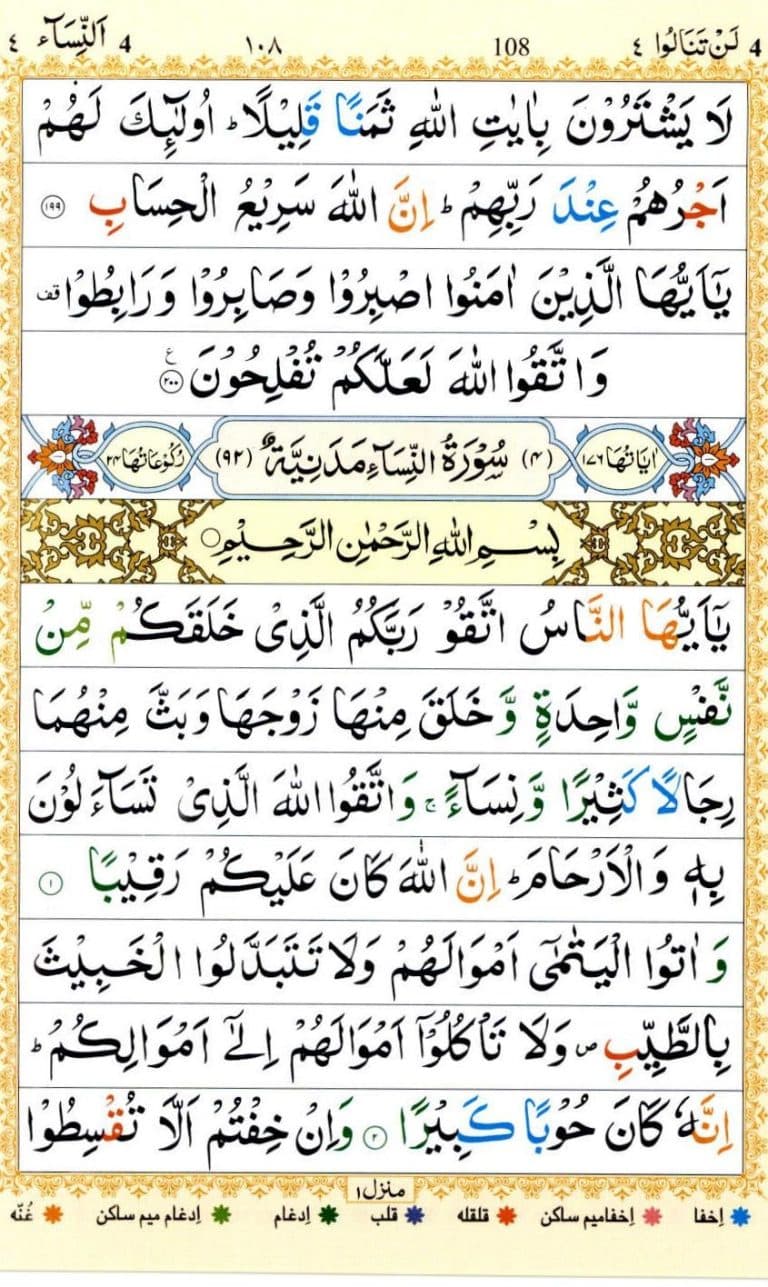 4 لَنْ تَنَالُوا ٤ 108 ١٠٨ 4 اَلنِّسَآء ٤
لَا يَشْتَرُوْنَ بِاٰيٰتِ اللّٰهِ ثَمَنًا قَلِيْلًا ؕ اُولٰٓئِكَ لَهُمْ
اَجْرُهُمْ عِنْدَ رَبِّهِمْ ؕ اِنَّ اللّٰهَ سَرِيْعُ الْحِسَابِ ۝۱۹۹
يٰۤاَيُّهَا الَّذِيْنَ اٰمَنُوا اصْبِرُوْا وَصَابِرُوْا وَرَابِطُوْا قف
وَاتَّقُوا اللّٰهَ لَعَلَّكُمْ تُفْلِحُوْنَ ۝۲۰۰ ع
اٰيَاتُهَا ١٧٦ (۴) سُوْرَةُ النِّسَآءِ مَدَنِيَّةٌ (٩٢) رُكُوْعَاتُهَا ٢٤
بِسْمِ اللّٰهِ الرَّحْمٰنِ الرَّحِيْمِ
يٰۤاَيُّهَا النَّاسُ اتَّقُوْا رَبَّكُمُ الَّذِىْ خَلَقَكُمْ مِّنْ
نَّفْسٍ وَّاحِدَةٍ وَّخَلَقَ مِنْهَا زَوْجَهَا وَبَثَّ مِنْهُمَا
رِجَالًا كَثِيْرًا وَّنِسَآءً ۚ وَاتَّقُوا اللّٰهَ الَّذِىْ تَسَآءَلُوْنَ
بِهٖ وَالْاَرْحَامَ ؕ اِنَّ اللّٰهَ كَانَ عَلَيْكُمْ رَقِيْبًا ۝۱
وَاٰتُوا الْيَتٰمٰٓى اَمْوَالَهُمْ وَلَا تَتَبَدَّلُوا الْخَبِيْثَ
بِالطَّيِّبِ ص وَلَا تَاْكُلُوْۤا اَمْوَالَهُمْ اِلٰٓى اَمْوَالِكُمْ ؕ
اِنَّهٗ كَانَ حُوْبًا كَبِيْرًا ۝۲ وَاِنْ خِفْتُمْ اَلَّا تُقْسِطُوْا
منزل ١
اِخفا اِخفامیم ساکن قلقله قلب اِدغام اِدغام میم ساکن غُنّه